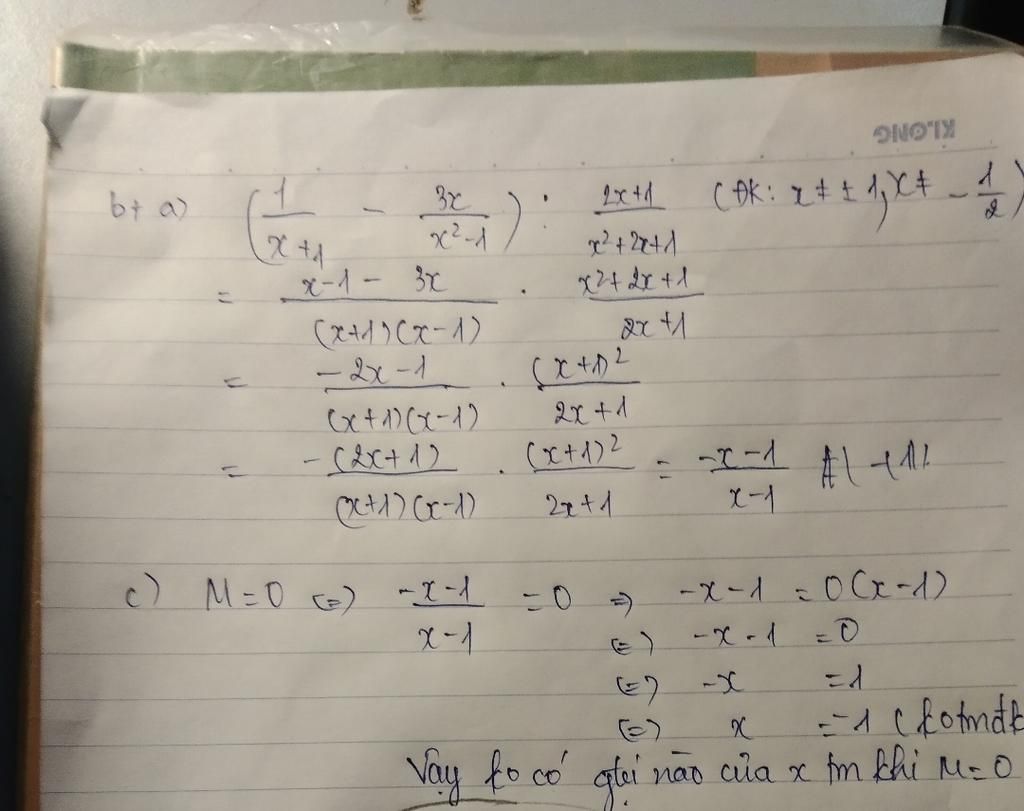 KLONG
b+ a) (1/(x+1) - 3x/(x²-1)) : (2x+1)/(x²+2x+1) (ĐK: x ≠ ± 1, x ≠ -1/2)
= (x-1 - 3x)/((x+1)(x-1)) . (x²+2x+1)/(2x+1)
= (-2x-1)/((x+1)(x-1)) . (x+1)²/(2x+1)
= -(2x+1)/((x+1)(x-1)) . (x+1)²/(2x+1) = (-x-1)/(x-1)
c) M=0 (=) (-x-1)/(x-1) = 0 => -x-1 = 0(x-1)
(=) -x-1 = 0
(=) -x = 1
(=) x = -1 (kotmđk
Vậy ko có gtri nào của x tm khi M=0